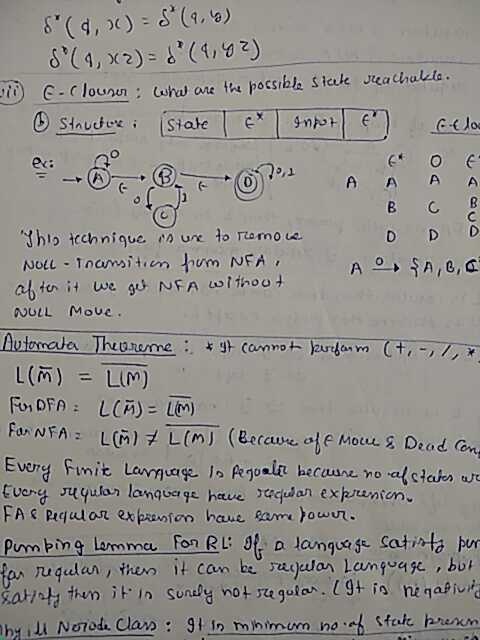 δ*(q, x) = δ*(q, y)
δ*(q, xz) = δ*(q, yz)
vii) ϵ-Clouser : what are the possible state reachable.
(b) Structure : State ϵ* Input ϵ*
ϵ-Clo
ex: → A 0 ϵ B ϵ D 0,1
0 1 C
ϵ* 0 ϵ*
A A A A
B C B C
D D D
This technique is use to remove
NULL - transition from NFA,
after it we get NFA without
NULL Move.
A 0→ {A, B, C
Automata Theoreme : * It cannot perform (+, -, /, *
L(M̄) = L̅(̅M̅)̅
For DFA = L(M̄) = L̅(̅M̅)̅
For NFA = L(M̄) ≠ L̅(̅M̅)̅ (Because of ϵ Move & Dead Con
Every Finite Language is Regualr because no of states ar
Every regular language have regular expression.
FA & Regular expression have same power.
Pumping Lemma For RL: If a language satisfy pum
for regular, then it can be regular Language, but
satisfy then it is surely not regular. (It is negativity
hyill Nerode Class : It is minimum no of state presen